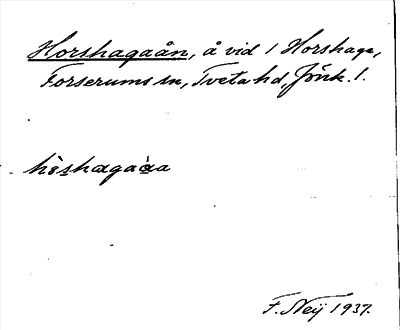 Horshagaån, å vid 1 Horshaga,
Forserums sn, Tveta hd, Jönk. l.
hòshagaàa
F. Neij 1937.